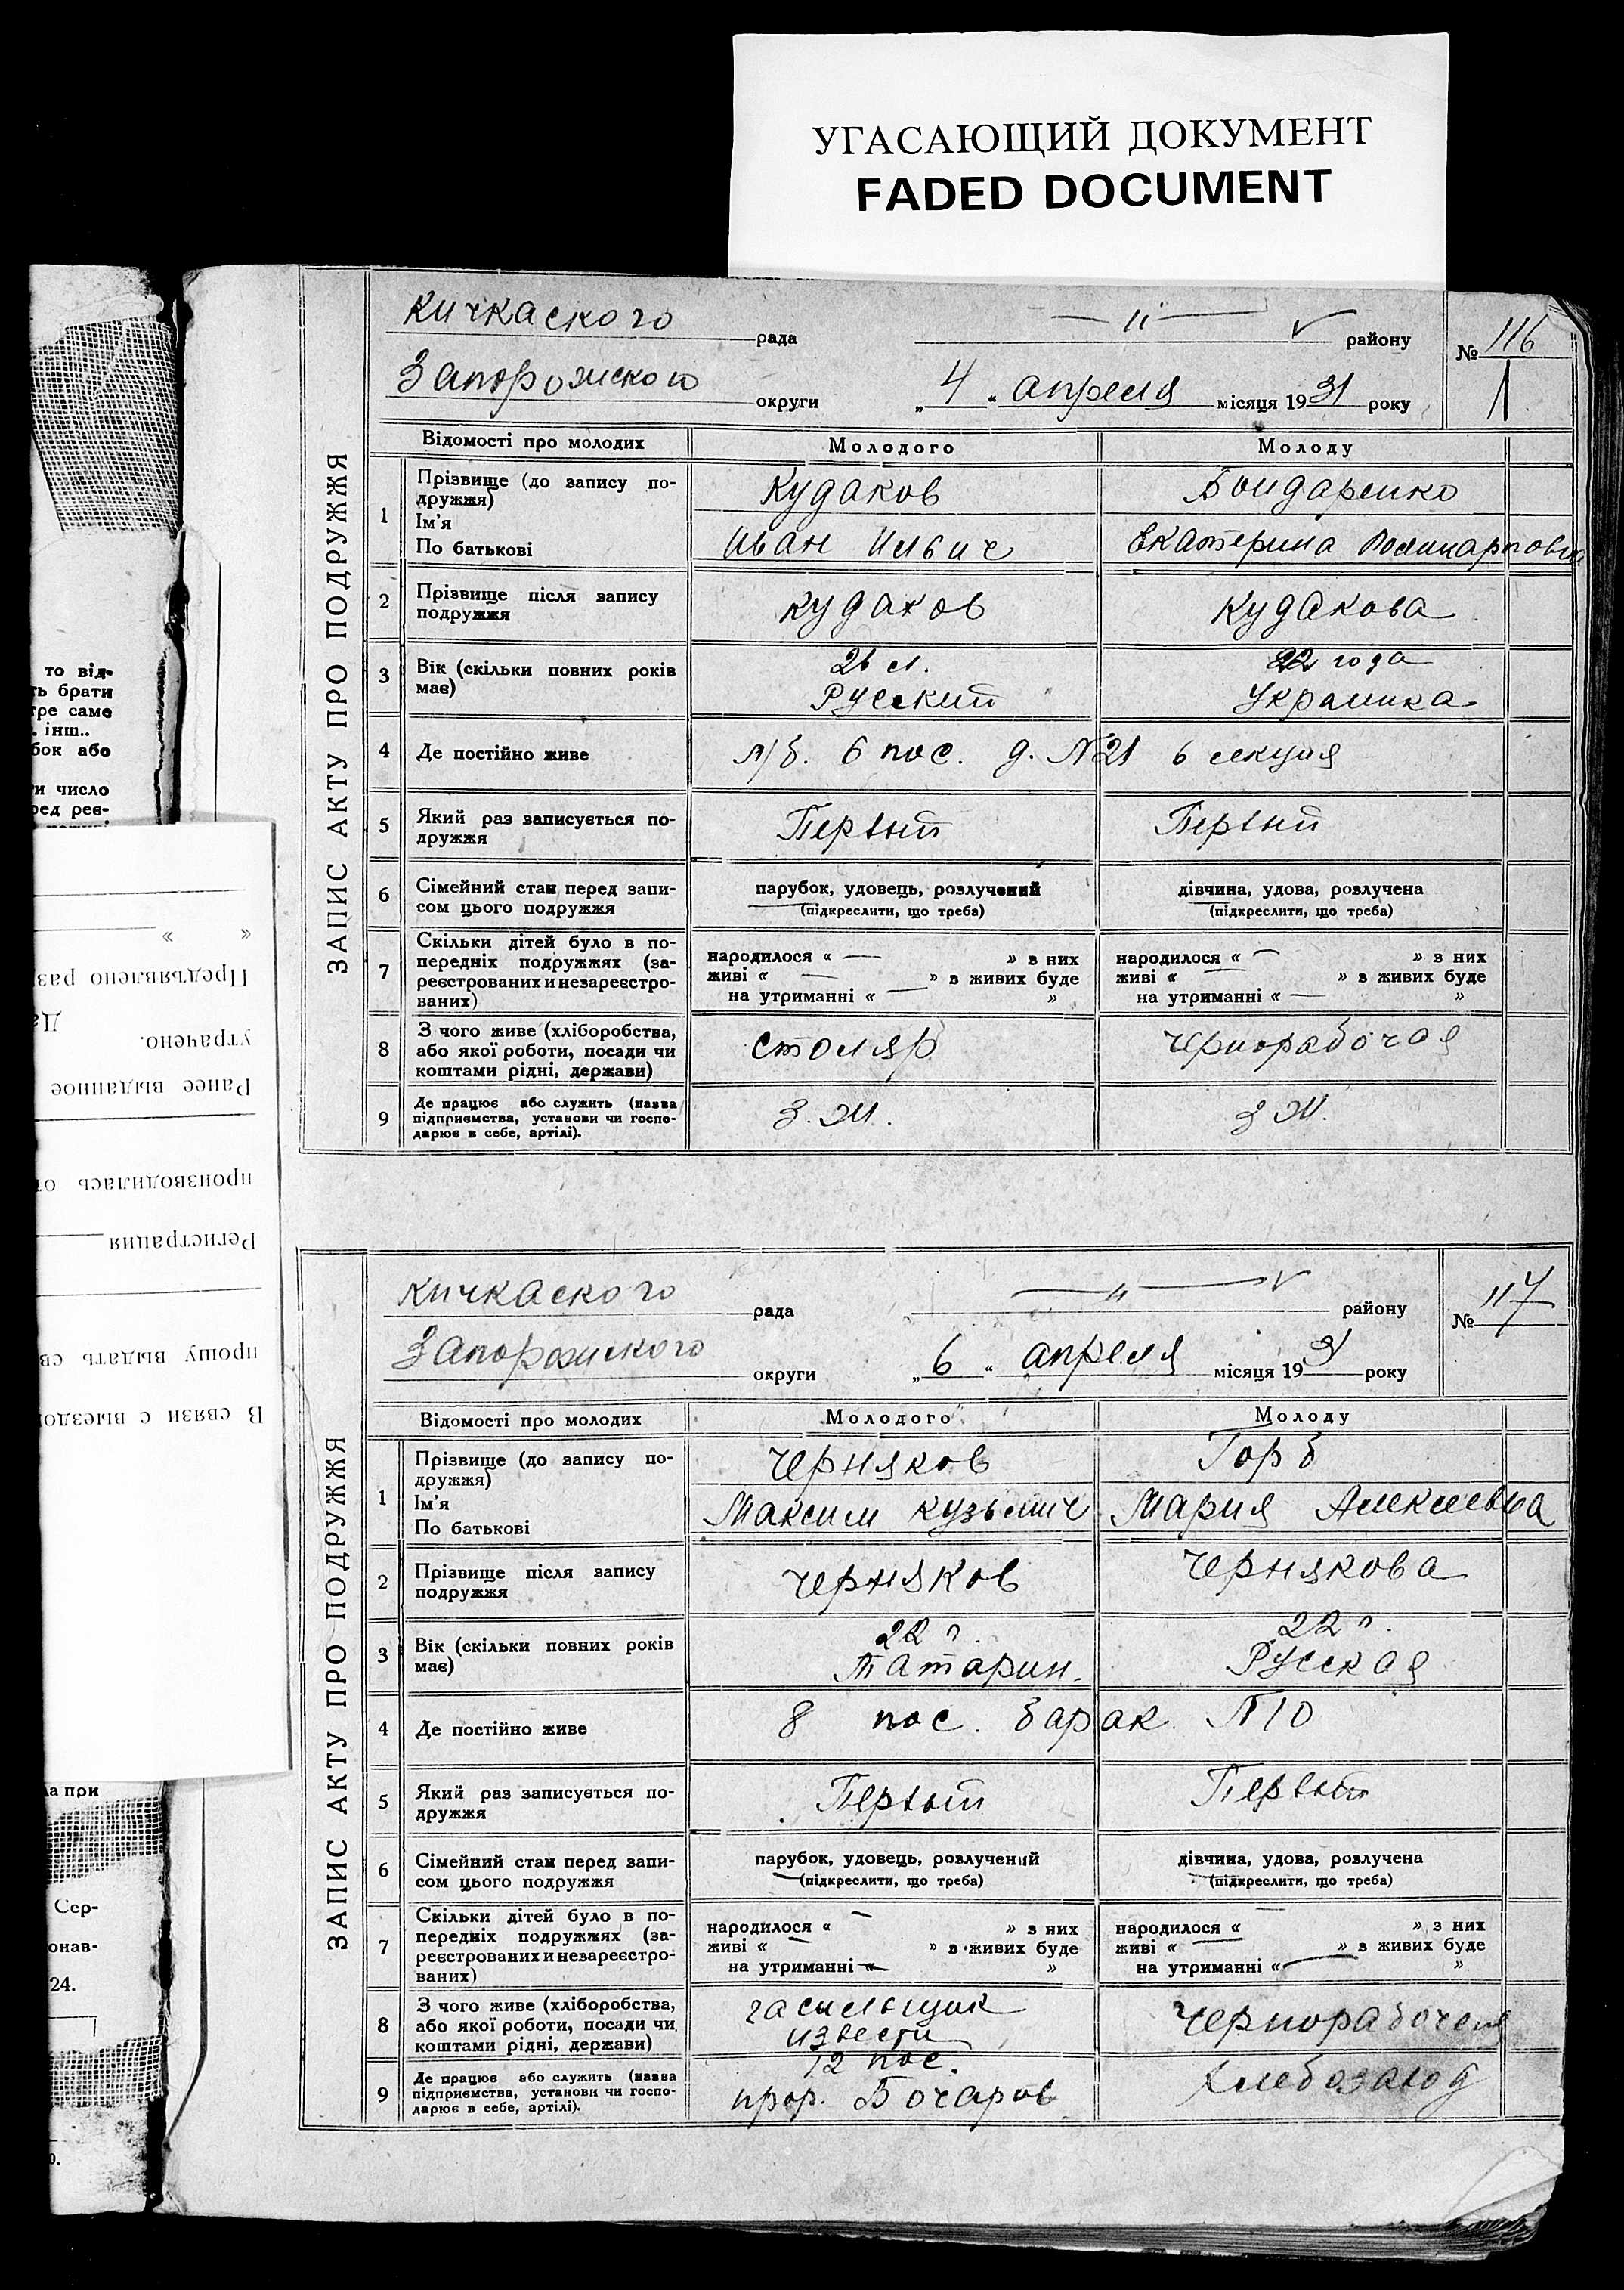 УГАСАЮЩИЙ ДОКУМЕНТ
FADED DOCUMENT
ЗАПИС АКТУ ПРО ПОДРУЖЖЯ
Кичкаского рада —"— району
№ 116
Запорожского округи „4“ апреля місяця 1931 року
Відомості про молодих Молодого Молоду
1 Прізвище (до запису по-
дружжя) Кудаков Бондаренко
Ім'я
По батькові Иван Ильич Екатерина Поликарповна
2 Прізвище після запису
подружжя Кудаков Кудакова
3 Вік (скільки повних років
має) 26 л. 22 года
Русский Украинка
4 Де постійно живе л/б. 6 пос. д. №21 6 секция
5 Який раз записується по-
дружжя Первый Первый
6 Сімейний стан перед запи-
сом цього подружжя
парубок, удовець, розлучений
(підкреслити, що треба)
дівчина, удова, розлучена
(підкреслити, що треба)
7 Скільки дітей було в по-
передніх подружжях (за-
реєстрованих и незареєстро-
ваних)
народилося « — » з них
живі « — » з живих буде
на утриманні « — »
народилося « — » з них
живі « — » з живих буде
на утриманні « — »
8 З чого живе (хліборобства,
або якої роботи, посади чи
коштами рідні, держави)
столяр чернорабочая
9 Де працює або служить (назва
підприємства, установи чи госпо-
дарює в себе, артілі).
ЗАПИС АКТУ ПРО ПОДРУЖЖЯ
Кичкаского рада —"— району
№ 117
Запорожского округи „6“ апреля місяця 1931 року
Відомості про молодих Молодого Молоду
1 Прізвище (до запису по-
дружжя) Черняков Горб
Ім'я
По батькові Максим Кузьмич Мария Алексеевна
2 Прізвище після запису
подружжя Черняков Чернякова
3 Вік (скільки повних років
має) 22 г. 22 г.
Татарин. Русская
4 Де постійно живе 8 пос. барак №10
5 Який раз записується по-
дружжя Первый Первый
6 Сімейний стан перед запи-
сом цього подружжя
парубок, удовець, розлучений
(підкреслити, що треба)
дівчина, удова, розлучена
(підкреслити, що треба)
7 Скільки дітей було в по-
передніх подружжях (за-
реєстрованих и незареєстро-
ваних)
народилося « — » з них
живі « — » з живих буде
на утриманні « — »
народилося « — » з них
живі « — » з живих буде
на утриманні « — »
8 З чого живе (хліборобства,
або якої роботи, посади чи
коштами рідні, держави)
гасильщик
извести
чернорабочая
9 Де працює або служить (назва
підприємства, установи чи госпо-
дарює в себе, артілі).
12 пос.
прор. Бочаров
Хлебозавод
то від-
ть брати
тре саме
. інш..
бок або
ти число
ред реє-
Предъявлено
утрачено.
Ранее выданное
производилась от
Регистрация
прошу выдать св
В связи с выездо
а при
Сер-
онав-
24.